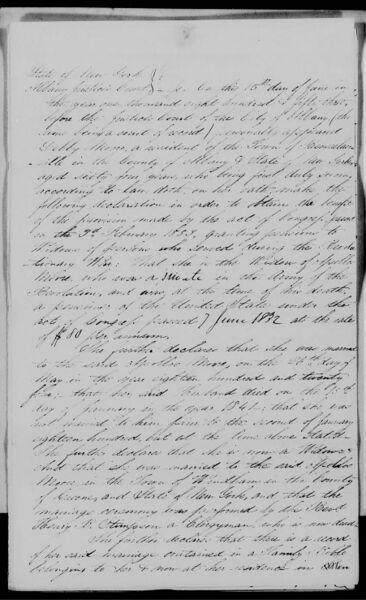 State of New York }
Albany Justices Court } ss. On this 15th day of June in
the year one thousand eight hundred & fifty three,
before the Justices Court of the City of Albany (the
same being a court of record) personally appeared
Debby Moore, a resident of the Town of Rensselaer-
ville in the County of Albany & State of New York,
aged sixty four years, who being first duly sworn,
according to law, doth, on her oath, make the
following declaration in order to obtain the benefit
of the provision made by the act of Congress passed
on the 3d February 1853, granting pensions to
Widows of persons who served during the Revolu-
tionary War: That she is the Widow of Apollos
Moore, who was a in the Army of the
Revolution, and was, at the time of his death,
a pensioner of the United States under the
act of Congress passed 7 June 1832 at the rate
of $80 per annum.
She further declares that she was married
to the said Apollos Moore, on the 26th day of
May in the year eighteen hundred and twenty
; that her said husband died on the
day of January in the year 1841; that she was
not married to him prior to the second of January
eighteen hundred, but at the time above stated.
She further declares that she is now a Widow.
And that she was married to the said Apollos
Moore in the Town of Windham in the County
of Greene, and State of New York, and that the
marriage ceremony was performed by the Revd
Henry B. Stimpson a Clergyman, who is now dead.
She further declares that there is a record
of her said marriage contained in a Family Bible
belonging to her & now at her residence in